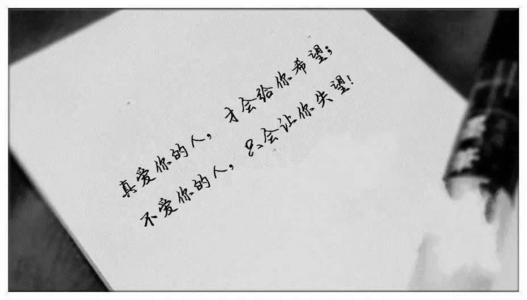 真爱你的人，才会给你希望；
不爱你的人，只会让你失望！